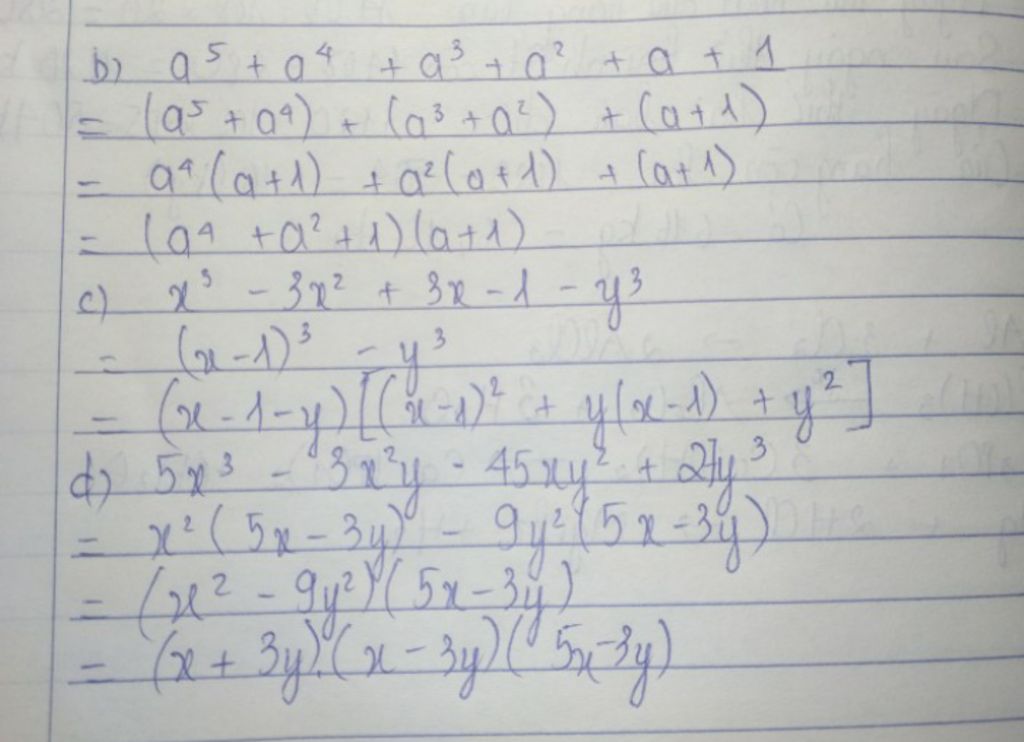 b) a⁵ + a⁴ + a³ + a² + a + 1
= (a⁵ + a⁴) + (a³ + a²) + (a + 1)
= a⁴(a+1) + a²(a+1) + (a+1)
= (a⁴ + a² + 1)(a+1)
c) x³ - 3x² + 3x - 1 - y³
= (x-1)³ - y³
= (x-1-y)[(x-1)² + y(x-1) + y²]
d) 5x³ - 3x²y - 45xy² + 27y³
= x²(5x - 3y) - 9y²(5x-3y)
= (x² - 9y²)(5x-3y)
= (x + 3y).(x - 3y)(5x-3y)